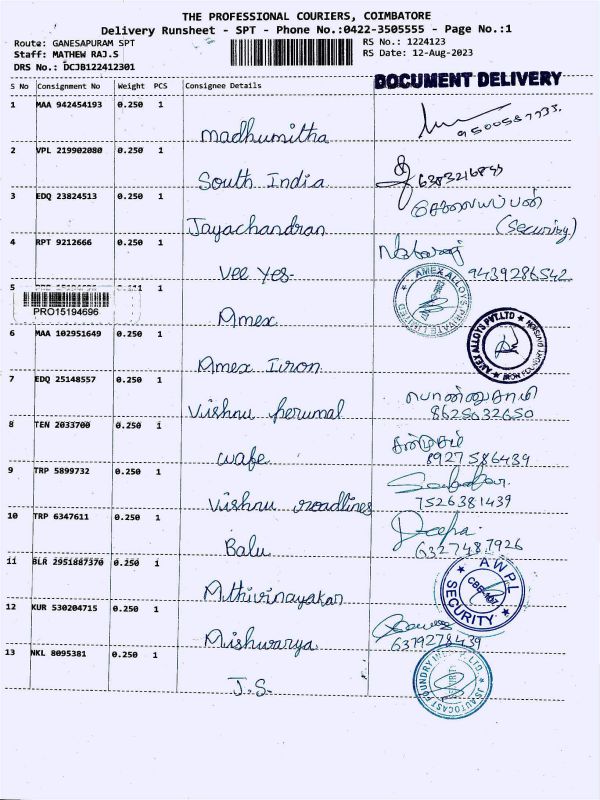 THE PROFESSIONAL COURIERS, COIMBATORE
Delivery Runsheet - SPT - Phone No.:0422-3505555 - Page No.:1
Route: GANESAPURAM SPT RS No.: 1224123
Staff: MATHEW RAJ.S RS Date: 12-Aug-2023
DRS No.: DCJB122412301
DOCUMENT DELIVERY
S No Consignment No Weight PCS Consignee Details
1 MAA 942454193 0.250 1
Madhumitha
2 VPL 219902080 0.250 1
South India
3 EDQ 23824513 0.250 1
Jayachandran (Security)
4 RPT 9212666 0.250 1 Nataraj
Vee Yes- 9439286542
AMEX ALLOYS PRIVATE LIMITED
5 1
PRO15194696
Amex
AMEX ALLOYS PVT.LTD
IRON FOUNDRY DIVISION
6 MAA 102951649 0.250 1
Amex Iron
7 EDQ 25148557 0.250 1 பொன்னுசாமி
Vishnu perumal 8625632650
8 TEN 2033700 0.250 1 சண்முகம்
wafe 8927586439
9 TRP 5899732 0.250 1
Vishnu roadlines 7526381439
10 TRP 6347611 0.250 1 Deepa.
Balu 6327487926
11 BLR 2951887370 0.250 1
Athivinayakar
AWPL
CBE-407
SECURITY
12 KUR 530204715 0.250 1
Aishwarya 6379278439
13 NKL 8095381 0.250 1
J.S.
JS AUTOCAST FOUNDRY LTD